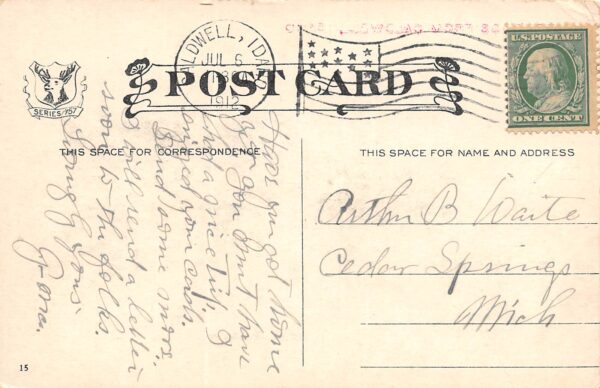 ALDWELL, IDA
JUL 6
1912
POST CARD
U.S. POSTAGE
ONE CENT
SERIES 757
THIS SPACE FOR CORRESPONDENCE
THIS SPACE FOR NAME AND ADDRESS
Have you got home
you must have
had a nice trip. I
enjoyed your cards.
Send some more.
I will send a letter
soon to the folks.
Lovingly yours
G-ma.
Arthur B Waite
Cedar Springs
Mich
15